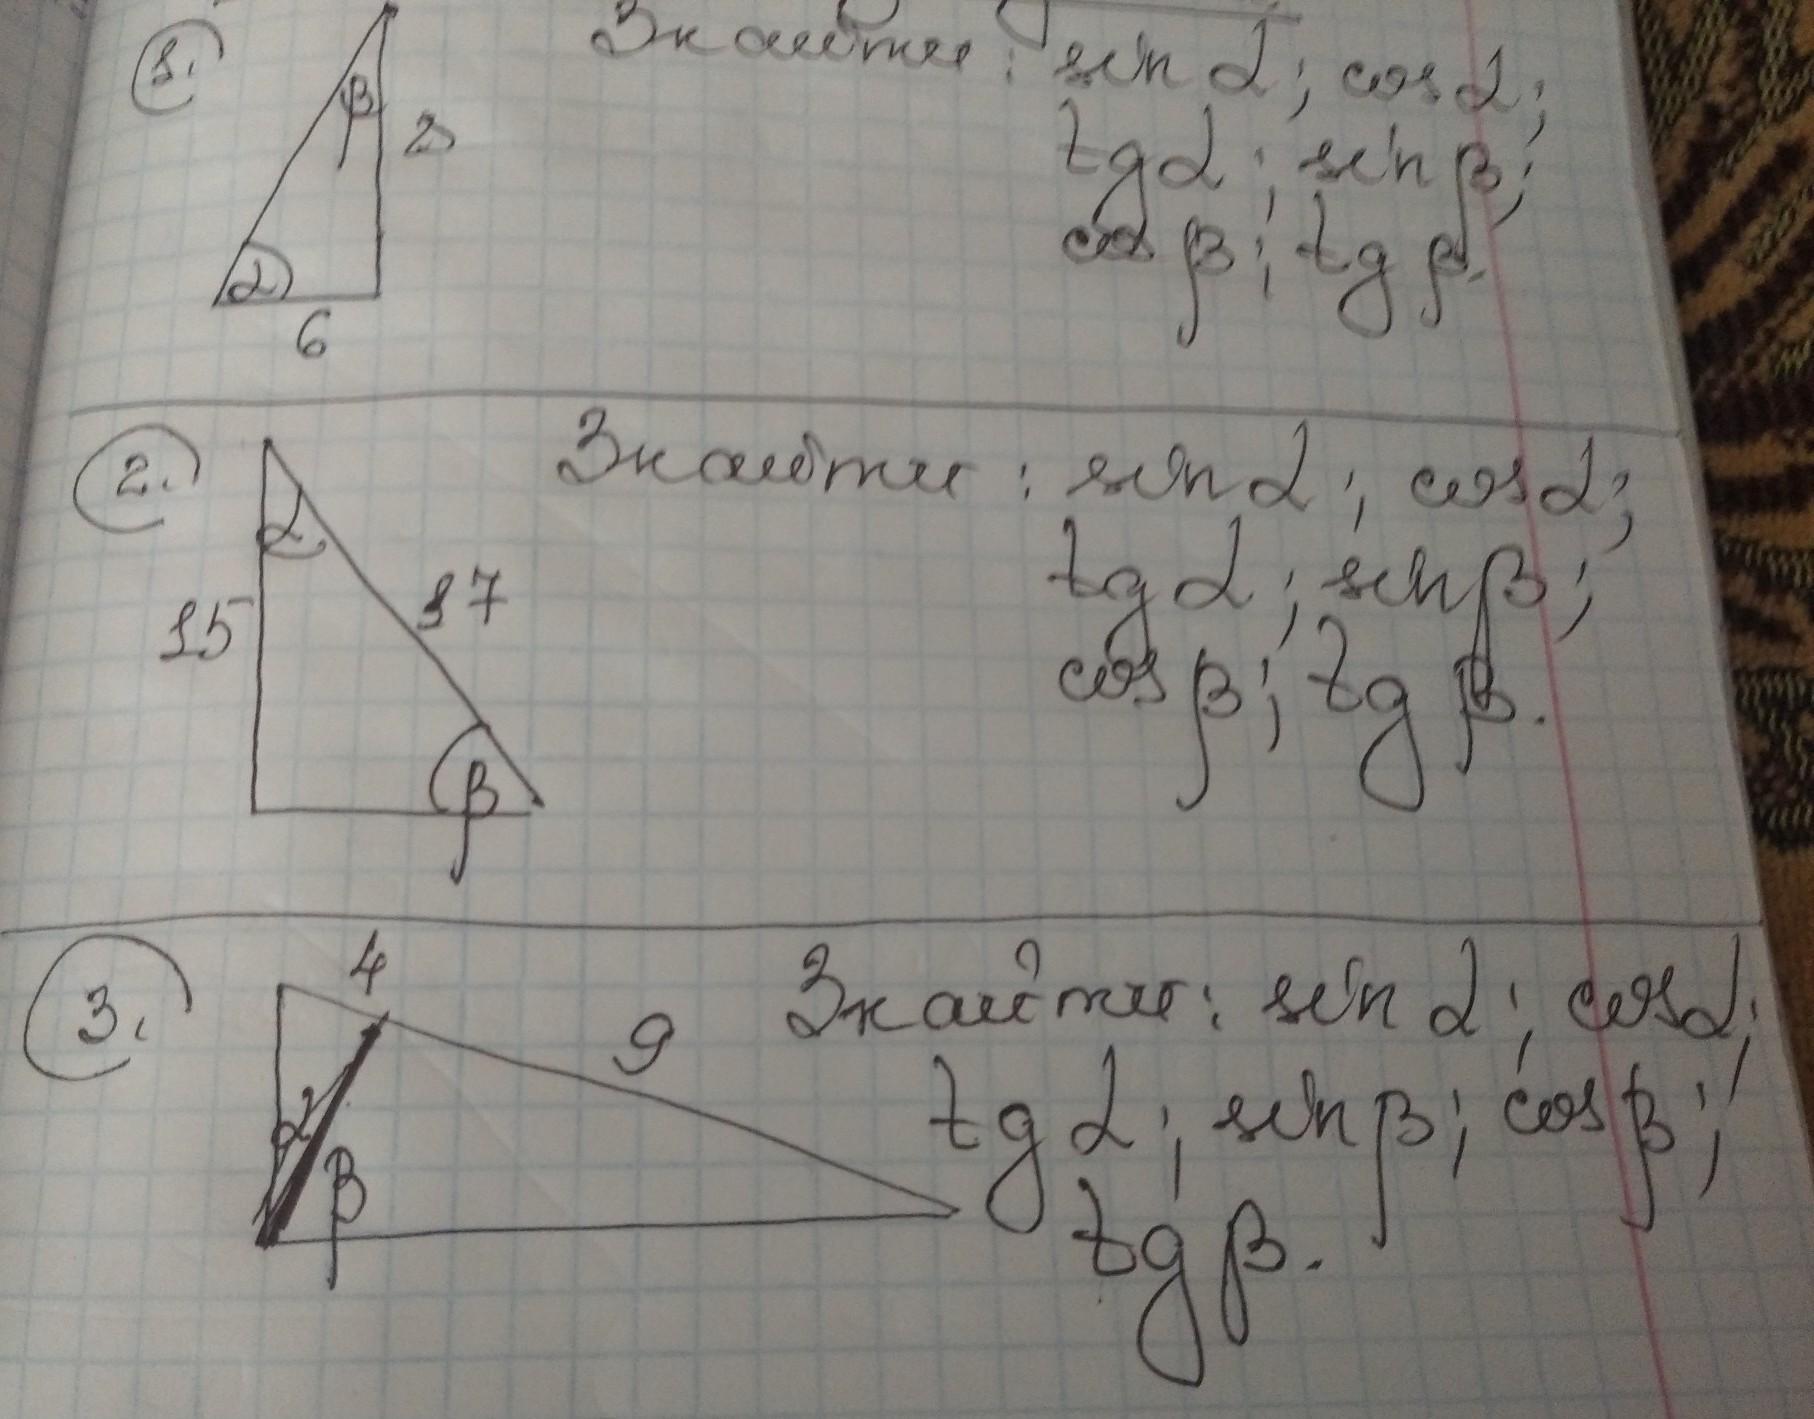 1.
β
2
α
6
Знайти: sin α; cos α;
tg α; sin β;
cos β; tg β.
2.
α
15
17
β
Знайти: sin α; cos α;
tg α; sin β;
cos β; tg β.
3.
4
9
α
β
Знайти: sin α; cos α;
tg α; sin β; cos β;
tg β.